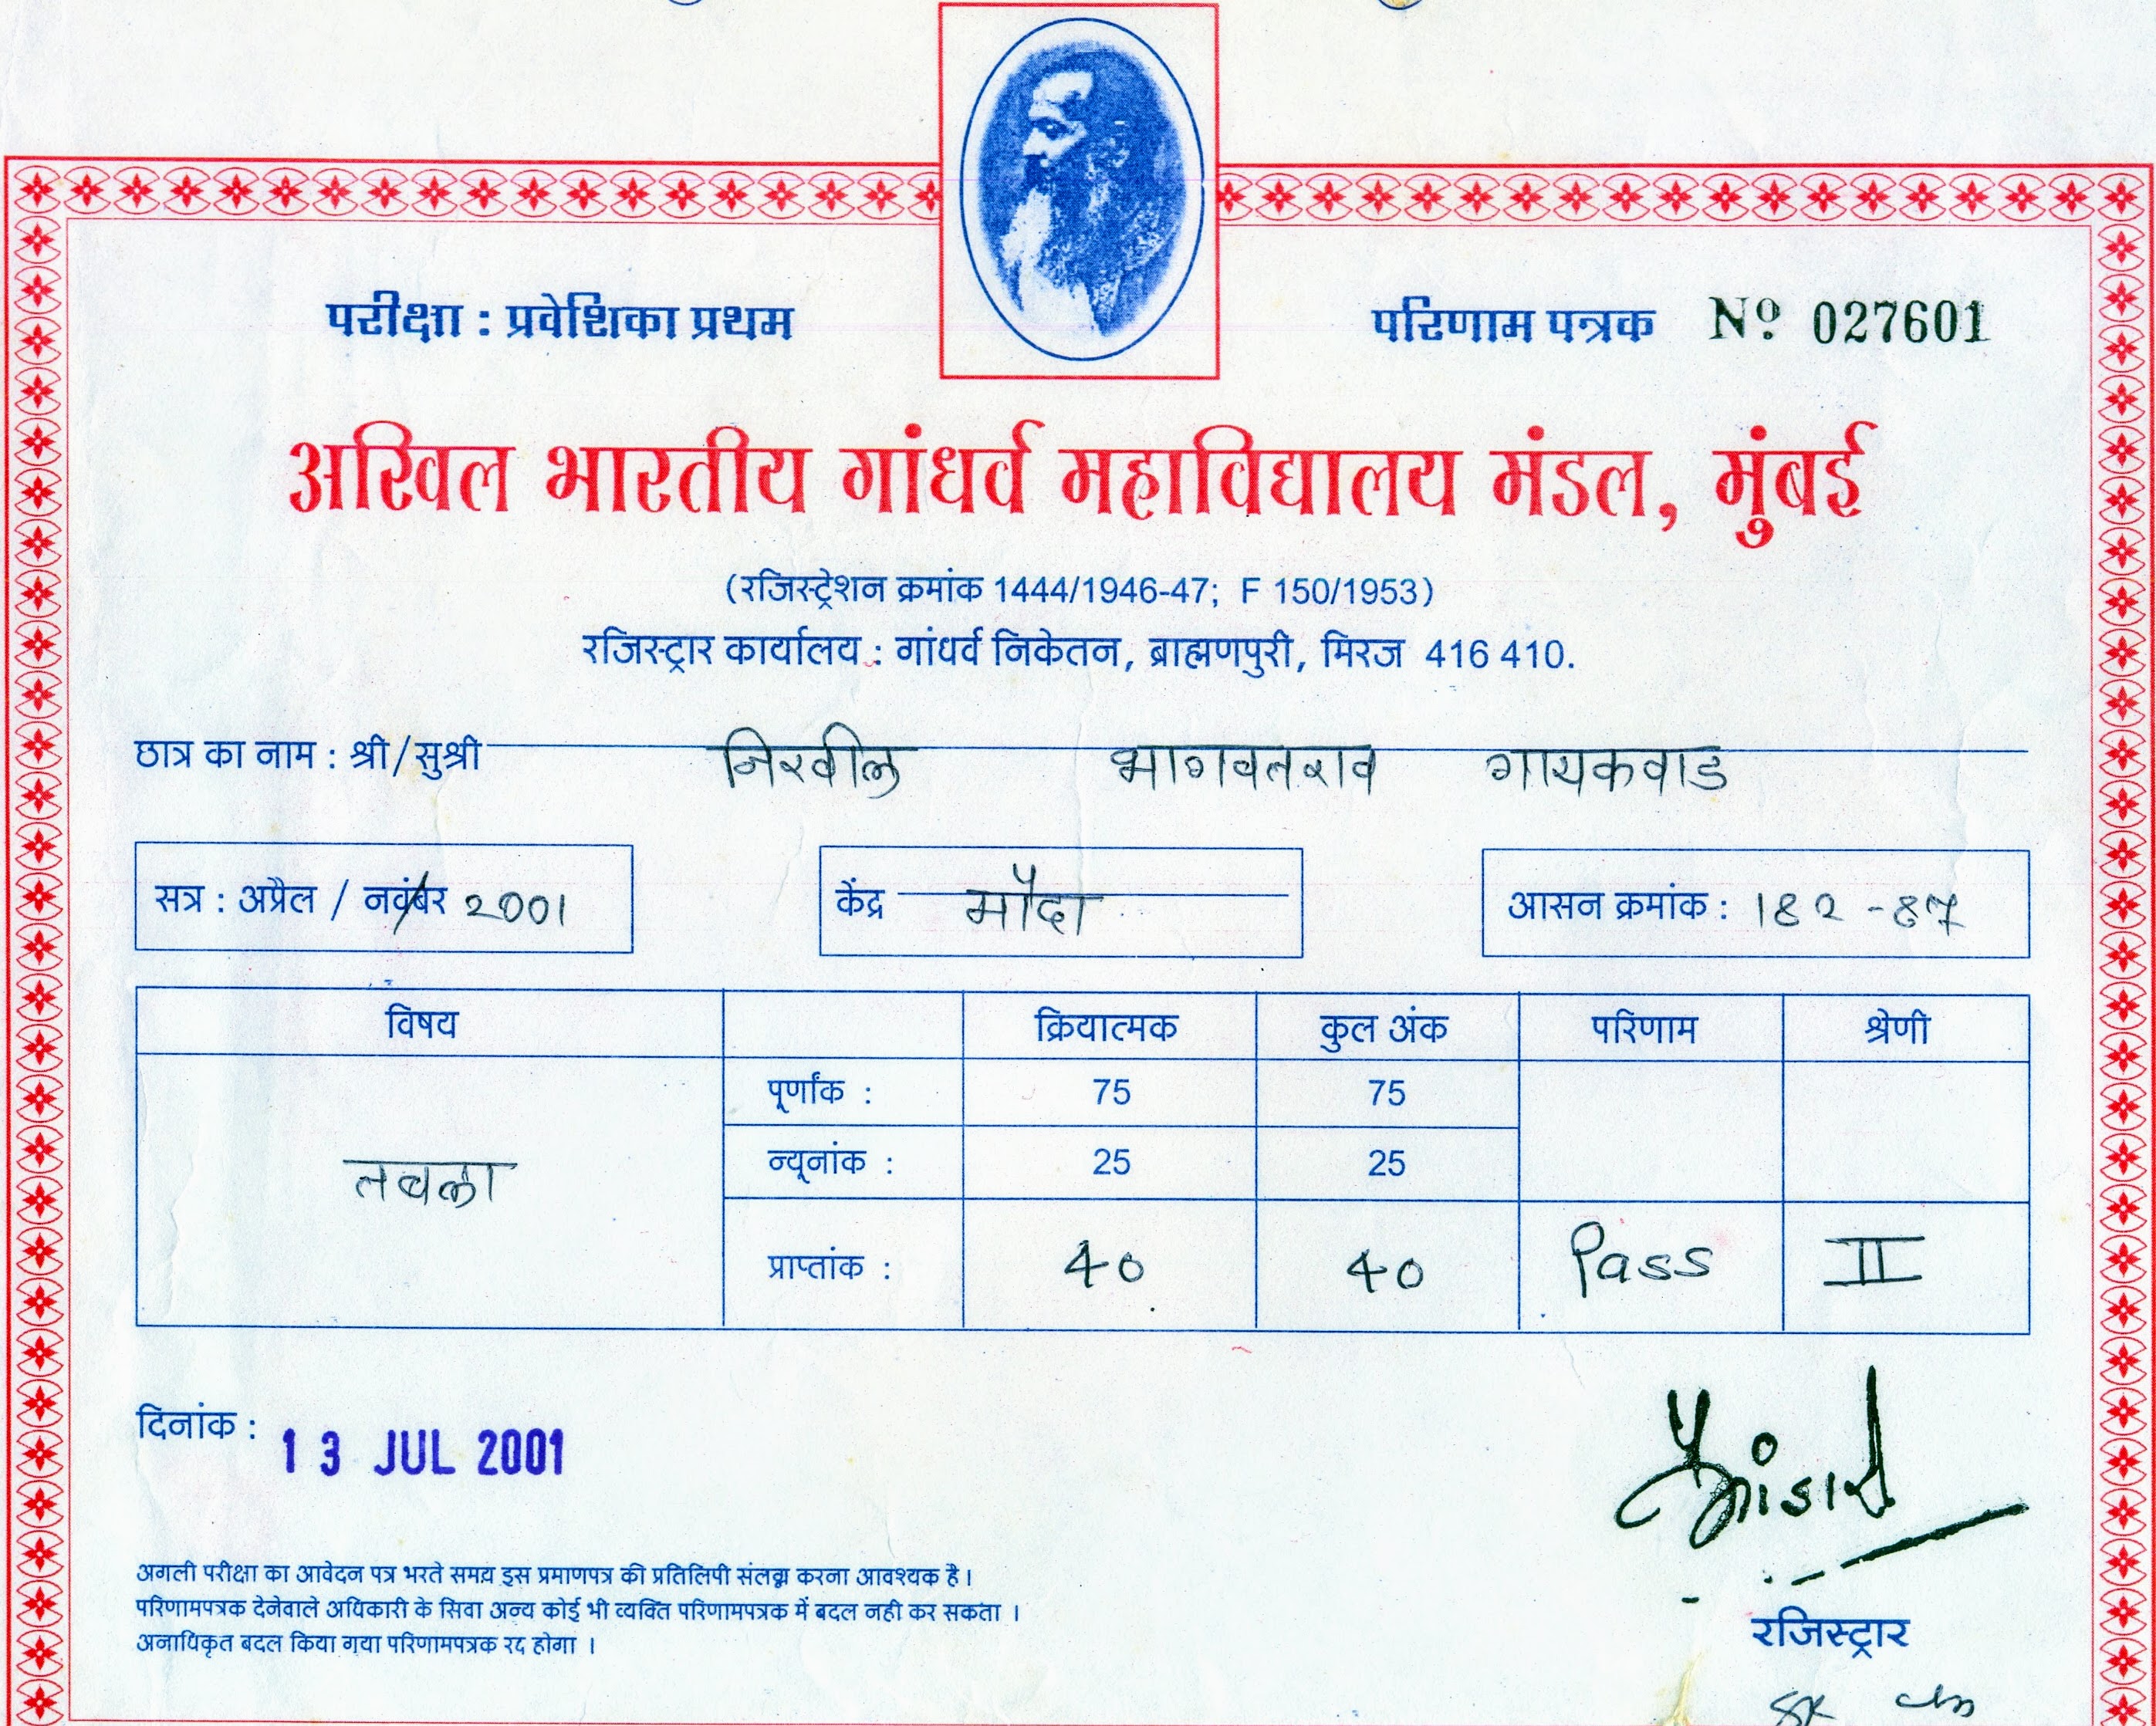 परीक्षा : प्रवेशिका प्रथम
परिणाम पत्रक Nº 027601
अखिल भारतीय गांधर्व महाविद्यालय मंडल, मुंबई
(रजिस्ट्रेशन क्रमांक 1444/1946-47; F 150/1953)
रजिस्ट्रार कार्यालय : गांधर्व निकेतन, ब्राह्मणपुरी, मिरज 416 410.
छात्र का नाम : श्री/सुश्री निखील भागवतराव गायकवाड
सत्र : अप्रैल / नवंबर 2001
केंद्र मौदा
आसन क्रमांक : 182 -87
विषय क्रियात्मक कुल अंक परिणाम श्रेणी
पूर्णांक : 75 75
न्यूनांक : 25 25
तबला
प्राप्तांक : 40 40 Pass II
दिनांक : 13 JUL 2001
अगली परीक्षा का आवेदन पत्र भरते समय इस प्रमाणपत्र की प्रतिलिपी संलग्न करना आवश्यक है।
परिणामपत्रक देनेवाले अधिकारी के सिवा अन्य कोई भी व्यक्ति परिणामपत्रक में बदल नही कर सकता ।
अनाधिकृत बदल किया गया परिणामपत्रक रद होगा ।
रजिस्ट्रार